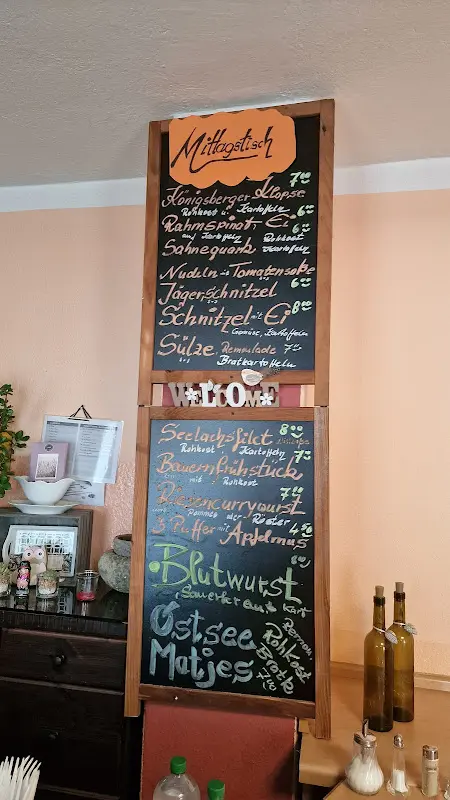 Mittagstisch
Königsberger Klopse 7,00
Rohkost u. Kartoffeln
Rahmspinat, Ei 6,00
auf Kartoffeln
Sahnequark Rohkost Kartoffeln 6,00
Nudeln in Tomatensoße
Jägerschnitzel 6,00
Schnitzel mit Ei 8,00
Gemüse, Kartoffeln
Sülze Remmolade 7,00
Bratkartoffeln
WELCOME
Seelachsfilet 8,00
Rohkost u. Kartoffeln
Bauernfrühstück 7,00
mit Rohkost
Riesencurrywurst 7,00
und Pommes oder Röster
3 Puffer mit Apfelmus 4,50
Blutwurst 8,00
Sauerkraut Kart
Ostsee
Matjes
Remou.
Rohkost
Bratk
7,00